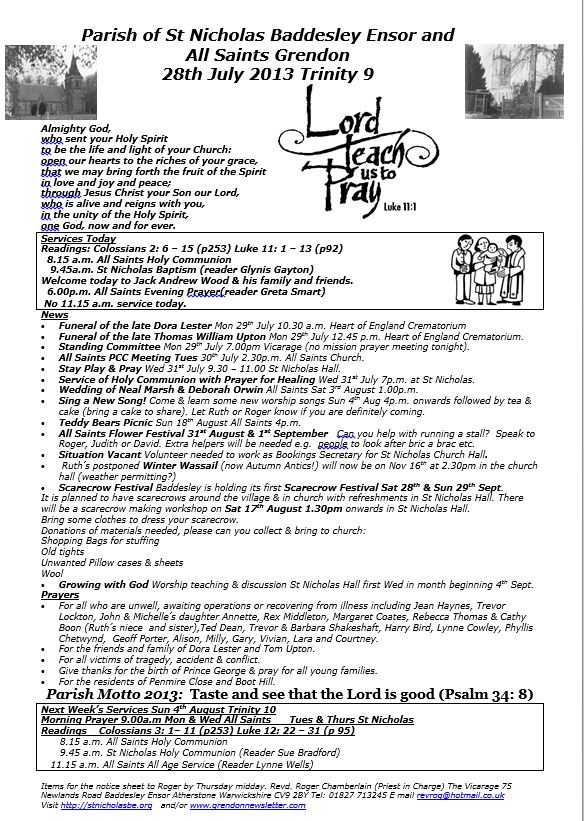 Parish of St Nicholas Baddesley Ensor and
All Saints Grendon
28th July 2013 Trinity 9
Almighty God,
who sent your Holy Spirit
to be the life and light of your Church:
open our hearts to the riches of your grace,
that we may bring forth the fruit of the Spirit
in love and joy and peace;
through Jesus Christ your Son our Lord,
who is alive and reigns with you,
in the unity of the Holy Spirit,
one God, now and for ever.
Lord
Teach
us to
Pray
Luke 11:1
Services Today
Readings: Colossians 2: 6 – 15 (p253) Luke 11: 1 – 13 (p92)
8.15 a.m. All Saints Holy Communion
9.45a.m. St Nicholas Baptism (reader Glynis Gayton)
Welcome today to Jack Andrew Wood & his family and friends.
6.00p.m. All Saints Evening Prayer(reader Greta Smart)
No 11.15 a.m. service today.
News
• Funeral of the late Dora Lester Mon 29th July 10.30 a.m. Heart of England Crematorium
• Funeral of the late Thomas William Upton Mon 29th July 12.45 p.m. Heart of England Crematorium.
• Standing Committee Mon 29th July 7.00pm Vicarage (no mission prayer meeting tonight).
• All Saints PCC Meeting Tues 30th July 2.30p.m. All Saints Church.
• Stay Play & Pray Wed 31st July 9.30 – 11.00 St Nicholas Hall.
• Service of Holy Communion with Prayer for Healing Wed 31st July 7p.m. at St Nicholas.
• Wedding of Neal Marsh & Deborah Orwin All Saints Sat 3rd August 1.00p.m.
• Sing a New Song! Come & learn some new worship songs Sun 4th Aug 4p.m. onwards followed by tea &
cake (bring a cake to share). Let Ruth or Roger know if you are definitely coming.
• Teddy Bears Picnic Sun 18th August All Saints 4p.m.
• All Saints Flower Festival 31st August & 1st September Can you help with running a stall? Speak to
Roger, Judith or David. Extra helpers will be needed e.g. people to look after bric a brac etc.
• Situation Vacant Volunteer needed to work as Bookings Secretary for St Nicholas Church Hall.
• Ruth's postponed Winter Wassail (now Autumn Antics!) will now be on Nov 16th at 2.30pm in the church
hall (weather permitting?)
• Scarecrow Festival Baddesley is holding its first Scarecrow Festival Sat 28th & Sun 29th Sept.
It is planned to have scarecrows around the village & in church with refreshments in St Nicholas Hall. There
will be a scarecrow making workshop on Sat 17th August 1.30pm onwards in St Nicholas Hall.
Bring some clothes to dress your scarecrow.
Donations of materials needed, please can you collect & bring to church:
Shopping Bags for stuffing
Old tights
Unwanted Pillow cases & sheets
Wool
• Growing with God Worship teaching & discussion St Nicholas Hall first Wed in month beginning 4th Sept.
Prayers
• For all who are unwell, awaiting operations or recovering from illness including Jean Haynes, Trevor
Lockton, John & Michelle's daughter Annette, Rex Middleton, Margaret Coates, Rebecca Thomas & Cathy
Boon (Ruth's niece and sister),Ted Dean, Trevor & Barbara Shakeshaft, Harry Bird, Lynne Cowley, Phyllis
Chetwynd, Geoff Porter, Alison, Milly, Gary, Vivian, Lara and Courtney.
• For the friends and family of Dora Lester and Tom Upton.
• For all victims of tragedy, accident & conflict.
• Give thanks for the birth of Prince George & pray for all young families.
• For the residents of Penmire Close and Boot Hill.
Parish Motto 2013: Taste and see that the Lord is good (Psalm 34: 8)
Next Week's Services Sun 4th August Trinity 10
Morning Prayer 9.00a.m Mon & Wed All Saints Tues & Thurs St Nicholas
Readings Colossians 3: 1– 11 (p253) Luke 12: 22 – 31 (p 95)
8.15 a.m. All Saints Holy Communion
9.45 a.m. St Nicholas Holy Communion (Reader Sue Bradford)
11.15 a.m. All Saints All Age Service (Reader Lynne Wells)
Items for the notice sheet to Roger by Thursday midday. Revd. Roger Chamberlain (Priest in Charge) The Vicarage 75
Newlands Road Baddesley Ensor Atherstone Warwickshire CV9 2BY Tel: 01827 713245 E mail revrog@hotmail.co.uk
Visit http://stnicholasbe.org and/or www.grendonnewsletter.com